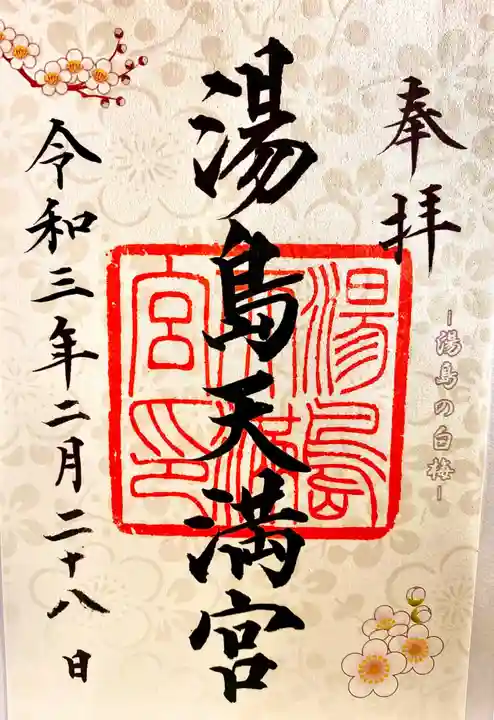 奉拝
-湯島の白梅-
湯島天満宮
湯島天満宮印
令和三年二月二十八日